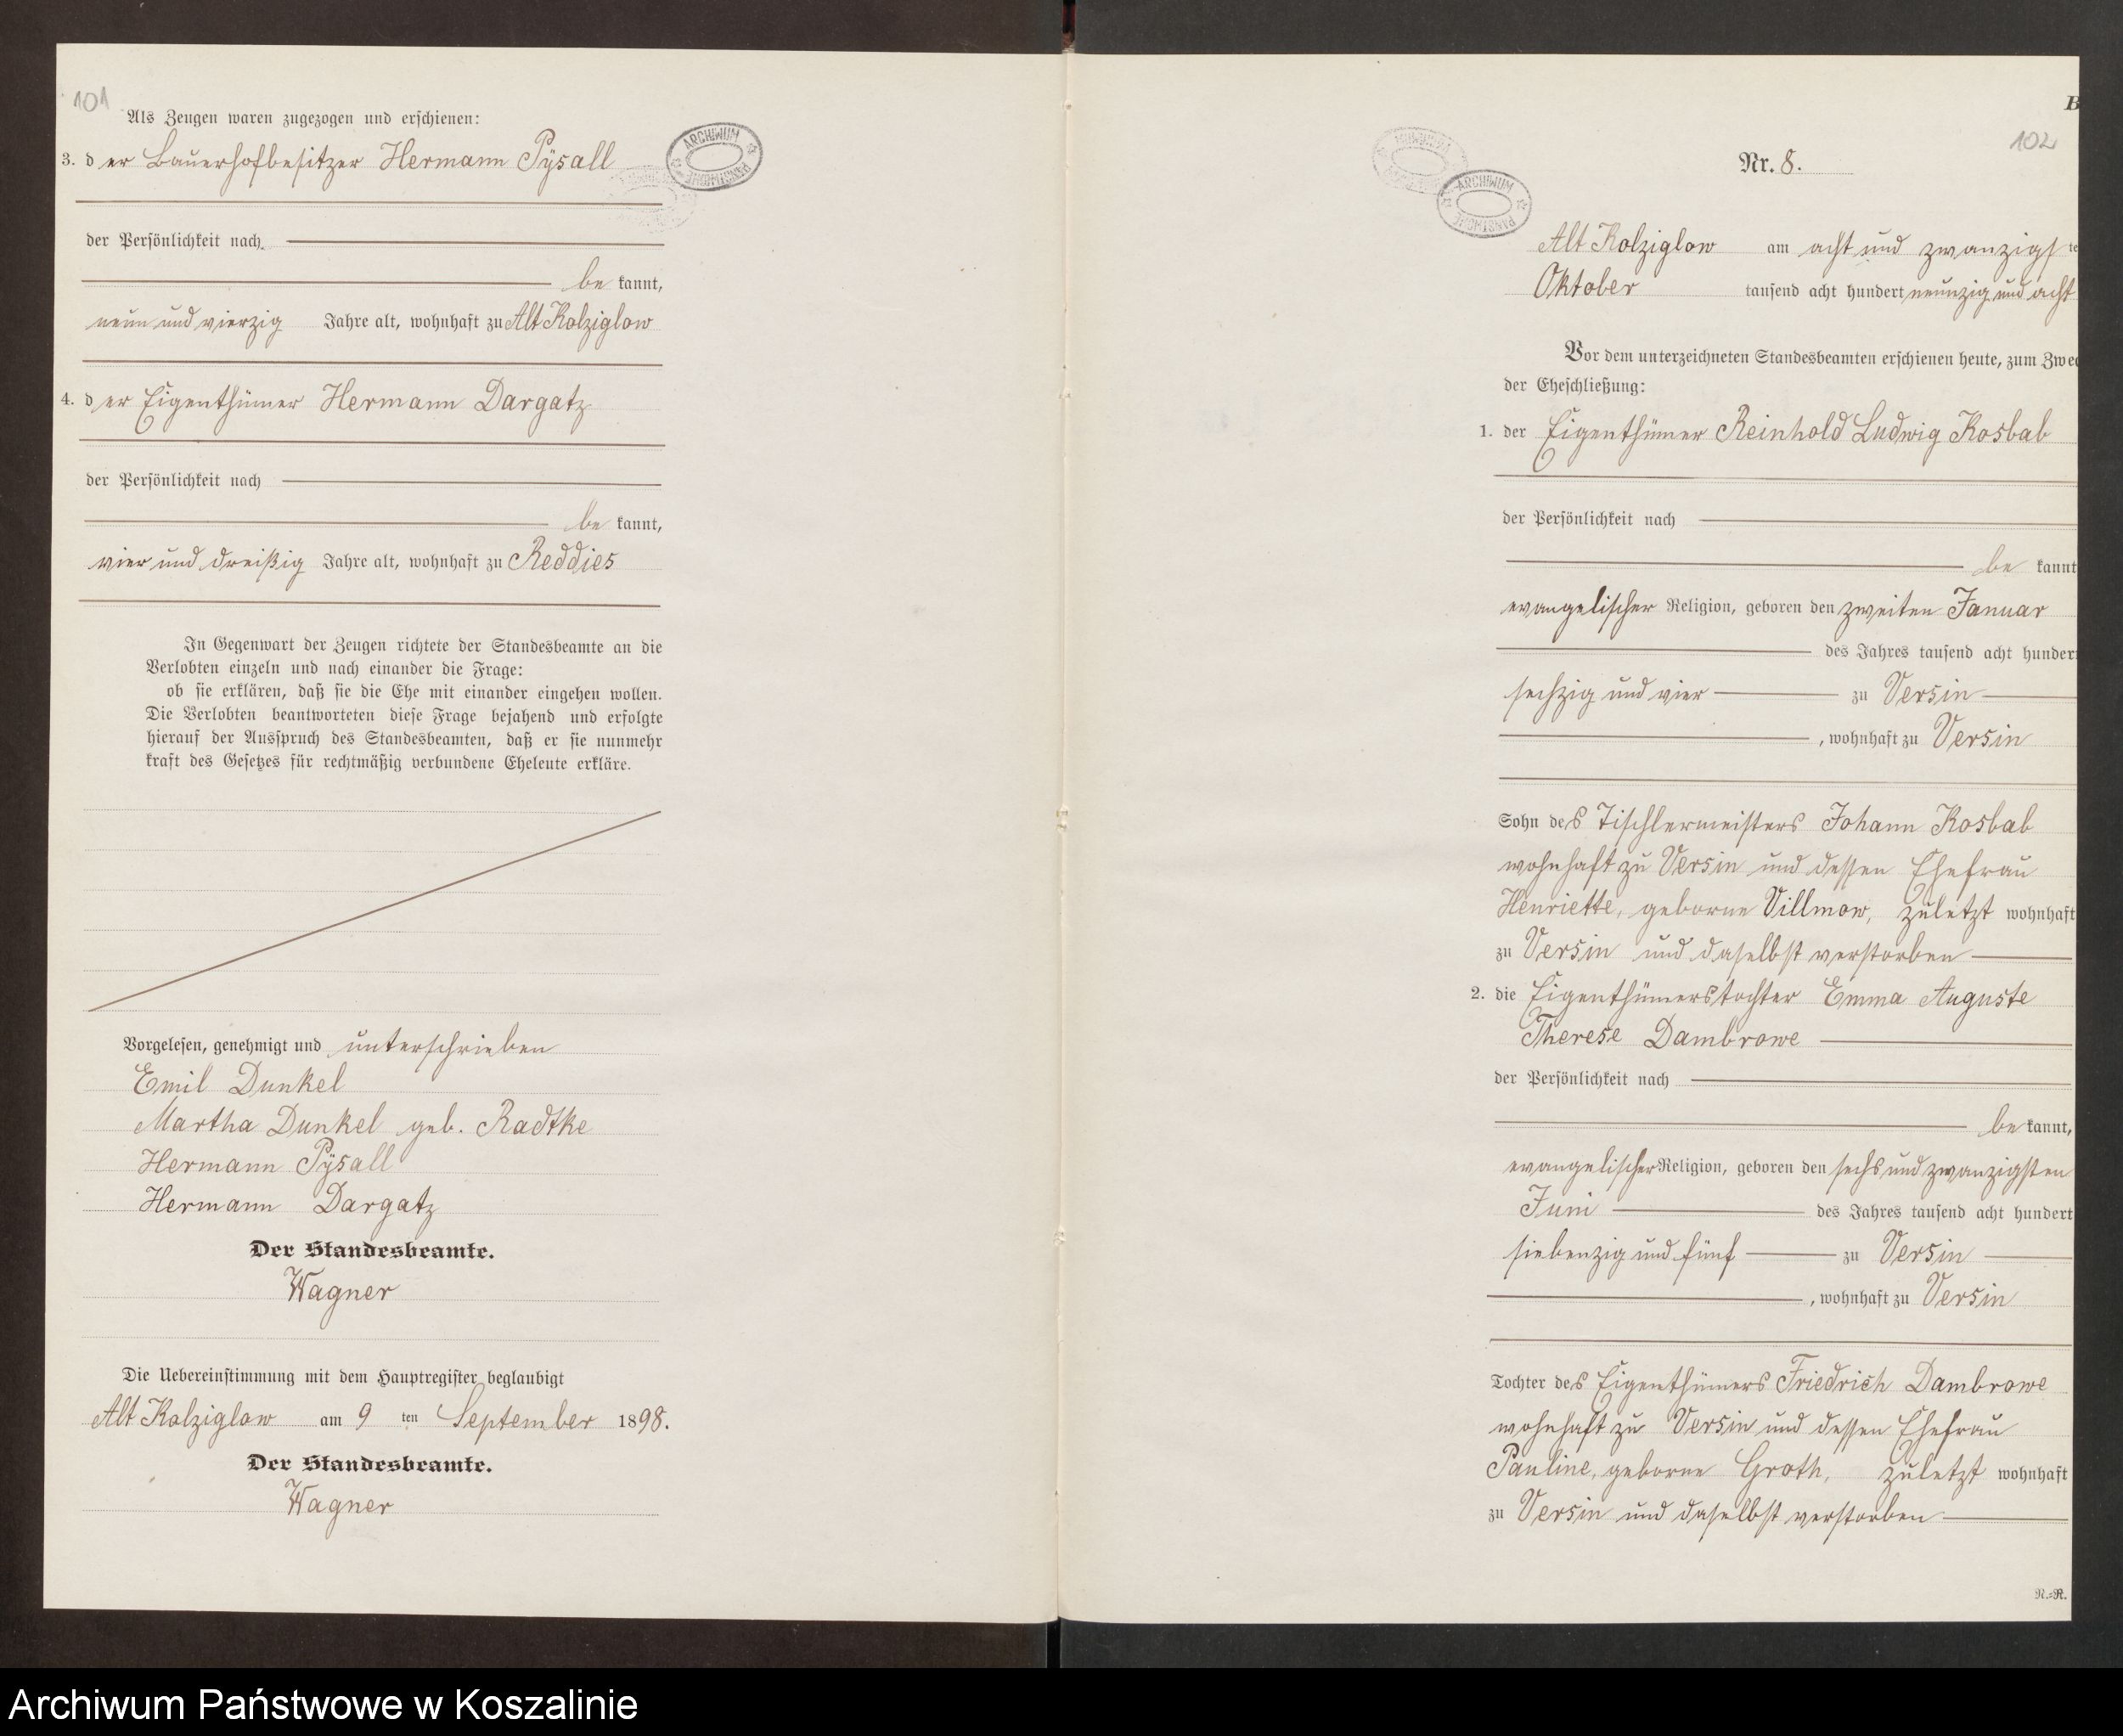 101
Als Zeugen waren zugezogen und erschienen:
3. der Bauerhofbesitzer Hermann Pÿsall
ARCHIWUM PAŃSTWOWE
der Persönlichkeit nach
be kannt,
neun und vierzig Jahre alt, wohnhaft zu Alt Kolziglow
4. der Eigenthümer Hermann Dargatz
der Persönlichkeit nach
be kannt,
vier und dreißig Jahre alt, wohnhaft zu Reddies
In Gegenwart der Zeugen richtete der Standesbeamte an die
Verlobten einzeln und nach einander die Frage:
ob sie erklären, daß sie die Ehe mit einander eingehen wollen.
Die Verlobten beantworteten diese Frage bejahend und erfolgte
hierauf der Ausspruch des Standesbeamten, daß er sie nunmehr
kraft des Gesetzes für rechtmäßig verbundene Eheleute erkläre.
Vorgelesen, genehmigt und unterschrieben
Emil Dunkel
Martha Dunkel geb. Radtke
Hermann Pÿsall
Hermann Dargatz
Der Standesbeamte.
Wagner
Die Uebereinstimmung mit dem Hauptregister beglaubigt
Alt Kolziglow am 9 ten September 1898.
Der Standesbeamte.
Wagner
B
102
Nr. 8.
ARCHIWUM PAŃSTWOWE
Alt Kolziglow am acht und zwanzigs te
Oktober tausend acht hundert neunzig und acht
Vor dem unterzeichneten Standesbeamten erschienen heute, zum Zwe
der Eheschließung:
1. der Eigenthümer Reinhold Ludwig Kosbab
der Persönlichkeit nach
be kannt
evangelischer Religion, geboren den zweiten Januar
des Jahres tausend acht hundert
sechzig und vier zu Versin
, wohnhaft zu Versin
Sohn des Tischlermeisters Johann Kosbab
wohnhaft zu Versin und dessen Ehefrau
Henriette, geborne Villmow, zuletzt wohnhaft
zu Versin und daselbst verstorben
2. die Eigenthümerstochter Emma Auguste
Therese Dambrowe
der Persönlichkeit nach
be kannt,
evangelischer Religion, geboren den sechs und zwanzigsten
Juni des Jahres tausend acht hundert
siebenzig und fünf zu Versin
, wohnhaft zu Versin
Tochter des Eigenthümers Friedrich Dambrowe
wohnhaft zu Versin und dessen Ehefrau
Pauline, geborne Groth, zuletzt wohnhaft
zu Versin und daselbst verstorben
R.-R.
Archiwum Państwowe w Koszalinie